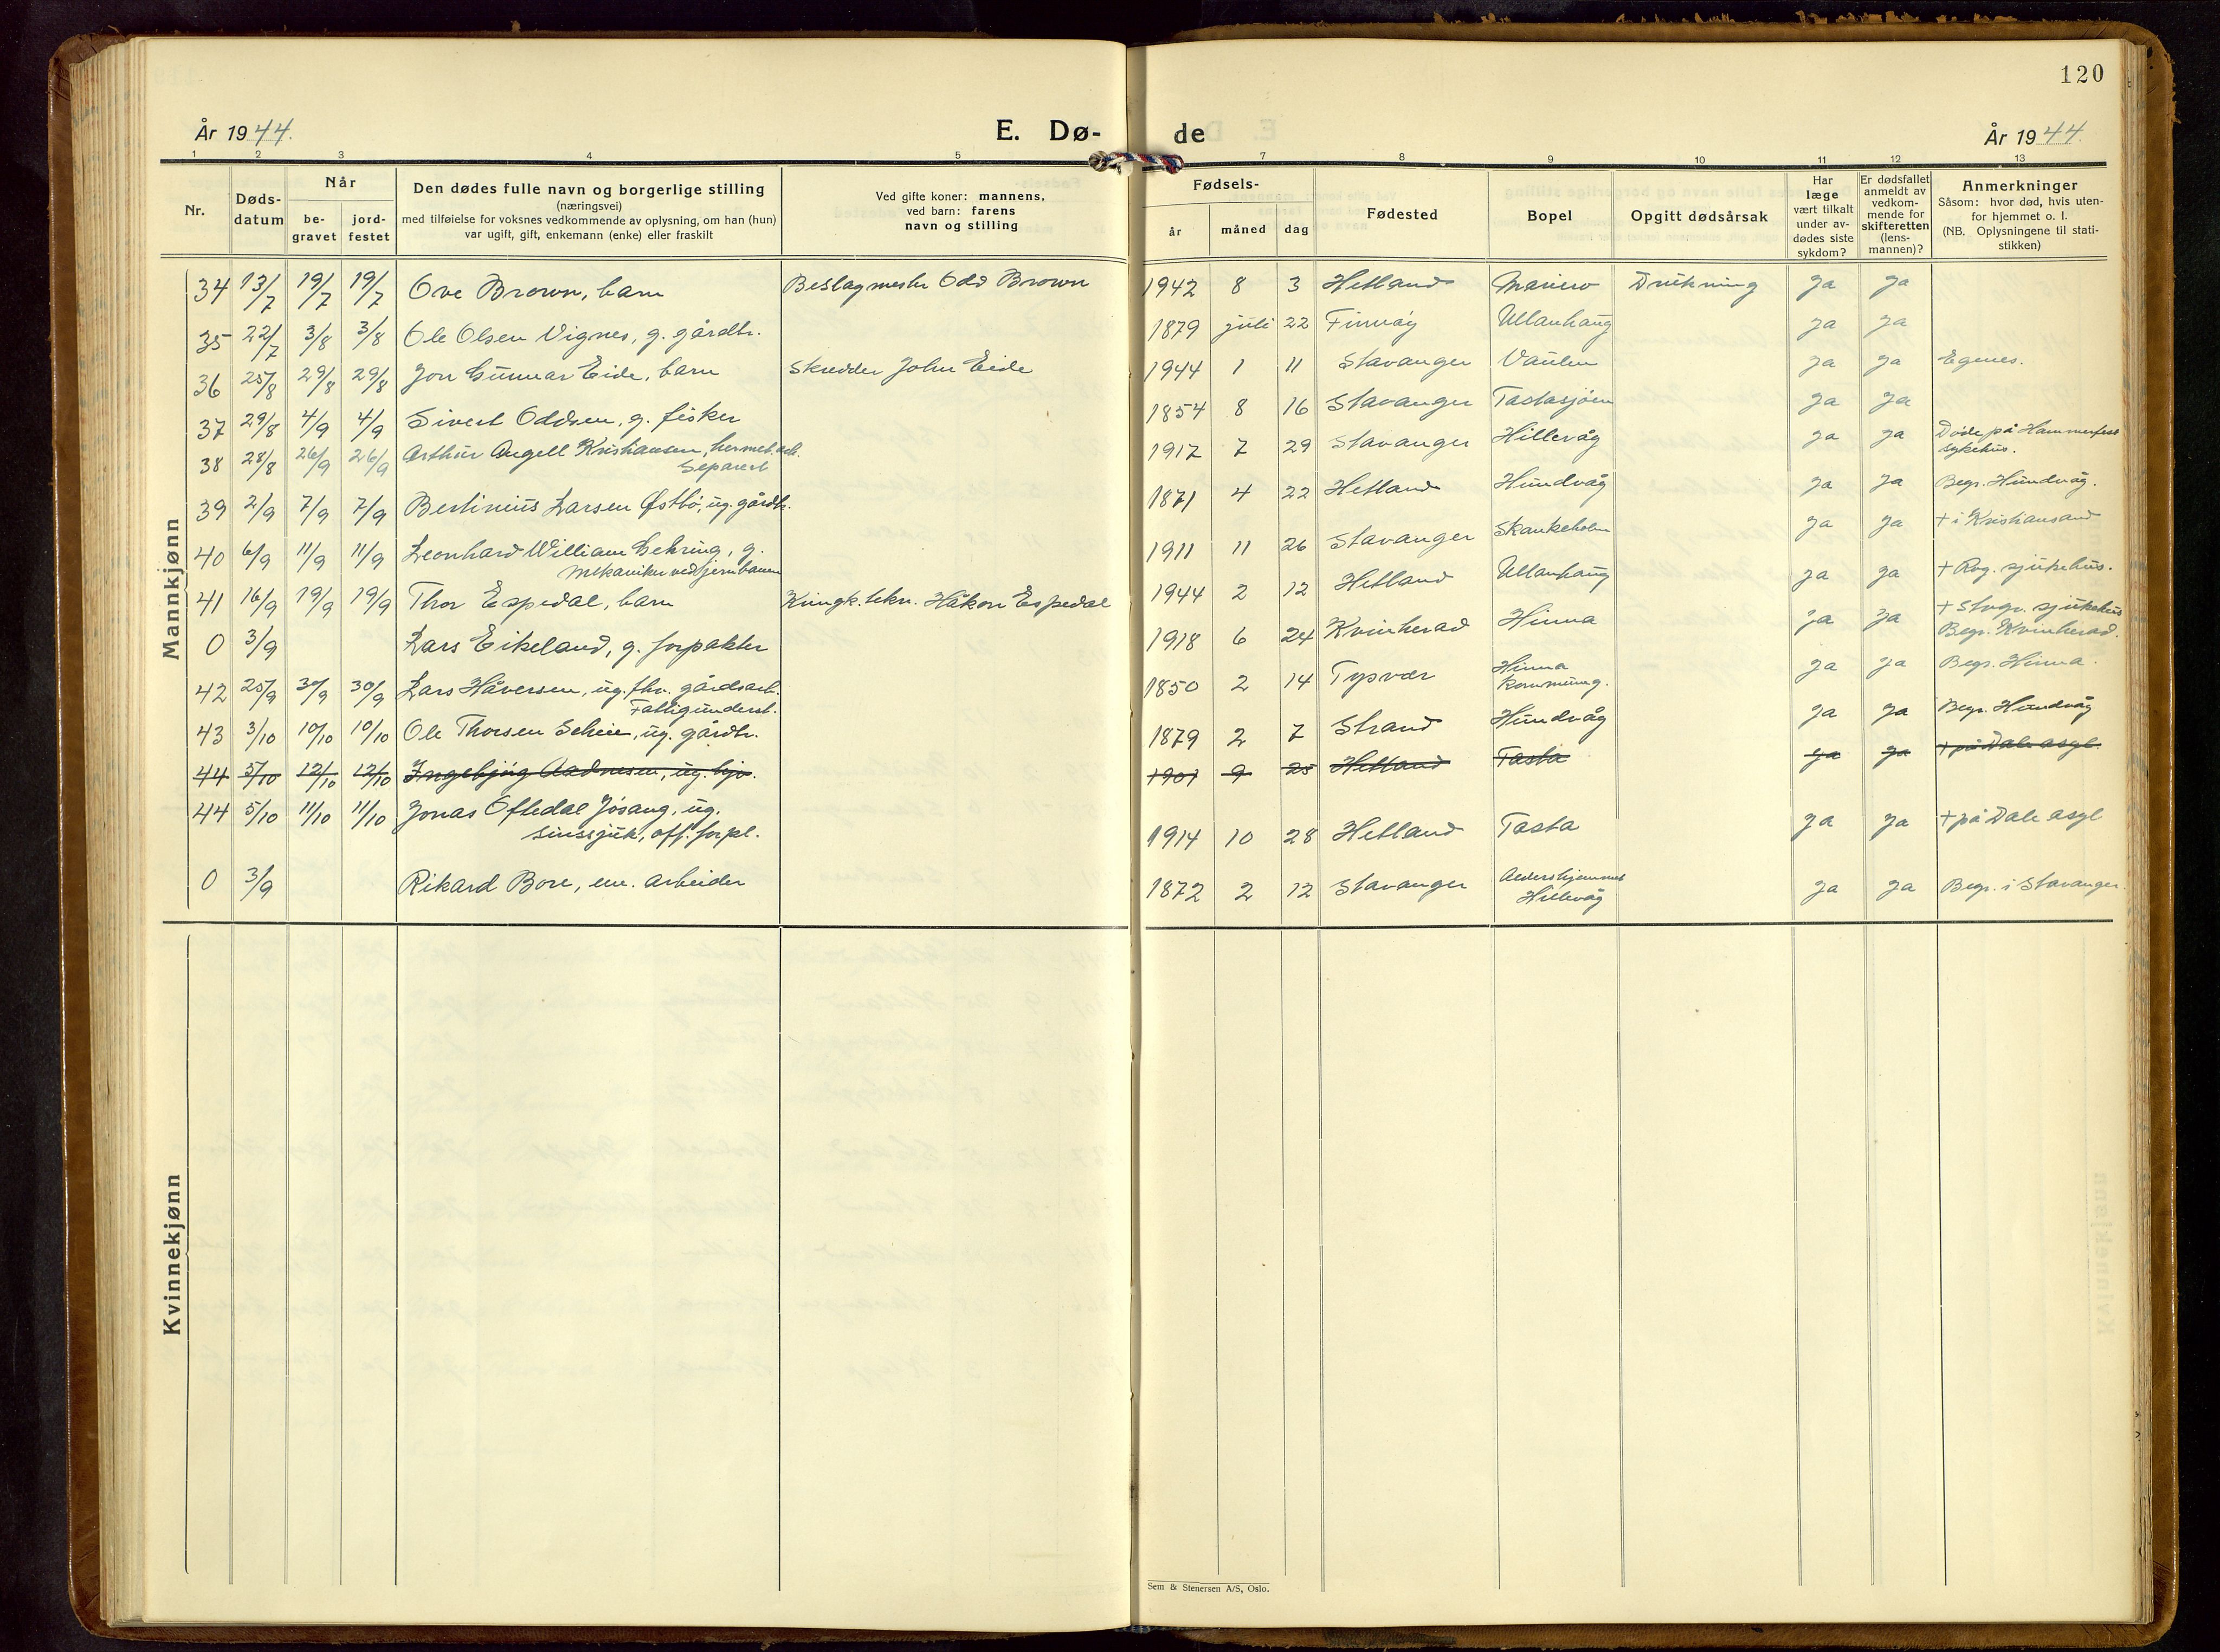 120
År 1944.
E. Dø-
de
År 1944.
1 2 3 4 5 7 8 9 10 11 12 13
Nr.
Døds-
datum
Når
be-
gravet
jord-
festet
Den dødes fulle navn og borgerlige stilling
(næringsvei)
med tilføielse for voksnes vedkommende av oplysning, om han (hun)
var ugift, gift, enkemann (enke) eller fraskilt
Ved gifte koner: mannens,
ved barn: farens
navn og stilling
Fødsels-
år
måned
dag
Fødested
Bopel
Opgitt dødsårsak
Har
læge
vært tilkalt
under av-
dødes siste
sykdom?
Er dødsfallet
anmeldt av
vedkom-
mende for
skifteretten
(lens-
mannen)?
Anmerkninger
Såsom: hvor død, hvis uten-
for hjemmet o. l.
(NB. Oplysningene til stati-
stikken)
Mannkjønn
34 13/7 19/7 19/7 Ove Brown, barn Beslagmester Odd Brown 1942 8 3 Hetland Mariero Drukning Ja Ja
35 22/7 3/8 3/8 Ole Olsen Vignes, g. gårdbr. 1879 juli 22 Finnøy Ullanhaug Ja Ja
36 25/8 29/8 29/8 Jon Gunnar Eide, barn Skredder John Eide 1944 1 11 Stavanger Vaulen Ja Ja Egenes.
37 29/8 4/9 4/9 Sivert Oddsen, g. fisker 1854 8 16 Stavanger Tastasjøen Ja Ja
38 28/8 26/9 26/9 Arthur Angell Kristiansen, hermet.arb. 1917 7 29 Stavanger Hillevåg Ja Ja Døde på Hammerfest
Separert sykehus.
39 2/9 7/9 7/9 Bertinius Larsen Østbø, ug. gårdbr. 1871 4 22 Hetland Hundvåg Ja Ja Begr. Hundvåg.
40 6/9 11/9 11/9 Leonhard William Gehring, g. 1911 11 26 Stavanger Skankeholm Ja Ja + i Kristiansand
Mekaniker ved jernbanen
41 16/9 19/9 19/9 Thor Espedal, barn Kringk.tekn. Håkon Espedal 1944 2 12 Hetland Ullanhaug Ja Ja + Rog. sjukehus.
0 3/9 Lars Eikeland, g. forpakter 1918 6 24 Kvinherad Hinna Ja Ja + Stvgr. sjukehus
Begr. Kvinherad.
42 25/9 30/9 30/9 Lars Håversen, ug. fhv. gårdsarb. 1850 2 14 Tysvær Hinna Ja Ja Begr. Hinna.
Fattigunderst. kommuneg.
43 3/10 10/10 10/10 Ole Thorsen Scheie, ug. gårdbr. 1879 2 7 Strand Hundvåg Ja Ja Begr. Hundvåg
44 5/10 12/10 12/10 Ingebjørg Aadnesen, ug. hjv. 1901 9 25 Hetland Tasta Ja Ja + på Dale asyl.
44 5/10 11/10 11/10 Jonas Oftedal Jøsang, ug. 1914 10 28 Hetland Tasta Ja Ja + på Dale asyl
sinssjuk, off. forpl.
0 3/9 Rikard Bore, em. arbeider 1872 2 12 Stavanger Aldershjemmet Ja Ja Begr. i Stavanger.
Hillevåg
Kvinnekjønn
Sem & Stenersen A/S, Oslo.